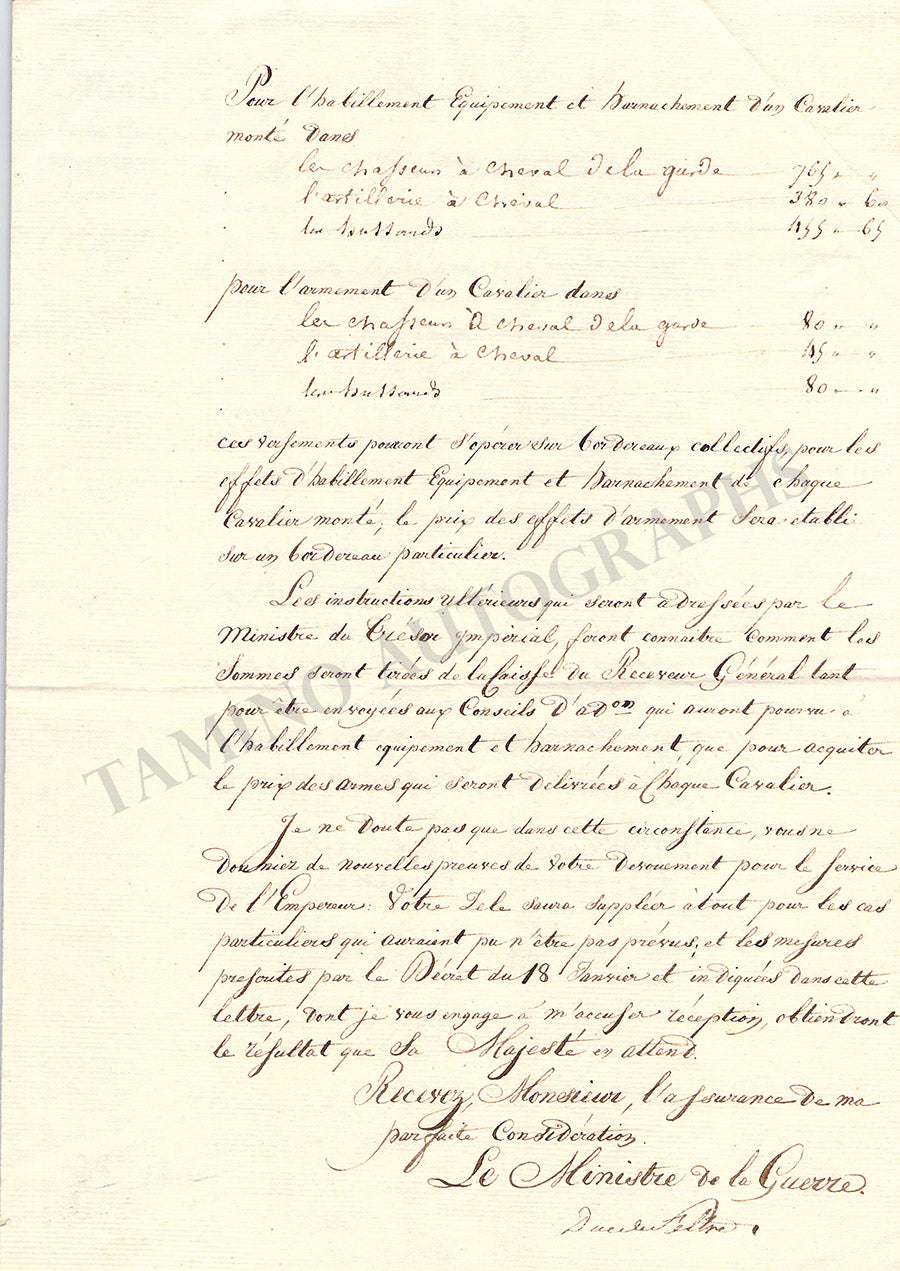 Pour l'habillement Equipement et harnachement d'un Cavalier
monté dans
les chasseurs à cheval de la garde 765 " "
l'artillerie à cheval 380 " 60
les hussards 455 " 65
pour l'armement d'un Cavalier dans
les chasseurs à cheval de la garde 80 " "
l'artillerie à cheval 45 " "
les hussards 80 " "
ces versements pourront s'opérer sur bordereaux collectifs, pour les
effets d'habillement Equipement et harnachement de chaque
Cavalier monté; le prix des effets d'armement sera établi
sur un bordereau particulier.
Les instructions ultérieurs qui seront adressées par le
Ministre du Trésor Impérial, feront connaitre comment les
Sommes seront tirées de la Caisse du Receveur Général tant
pour être envoyées aux Conseils d'adon qui auront pourvu à
l'habillement equipement et harnachement que pour acquiter
le prix des armes qui seront délivrées à Chaque Cavalier.
Je ne doute pas que dans cette circonstance, vous ne
donniez de nouvelles preuves de votre devouement pour le service
De l'Empereur: Votre Zele saura suppléer à tout pour les cas
particuliers qui auraient pu n'être pas prévus, et les mesures
prescrites par le Décret du 18 Janvier et indiquées dans cette
lettre, dont je vous engage à m'accuser réception, obtiendront
le résultat que Sa Majesté en attend.
Recevez, Monsieur, l'assurance de ma
parfaite Considération.
Le Ministre de la Guerre.
Duc de Feltre.
TAMINO AUTOGRAPHS